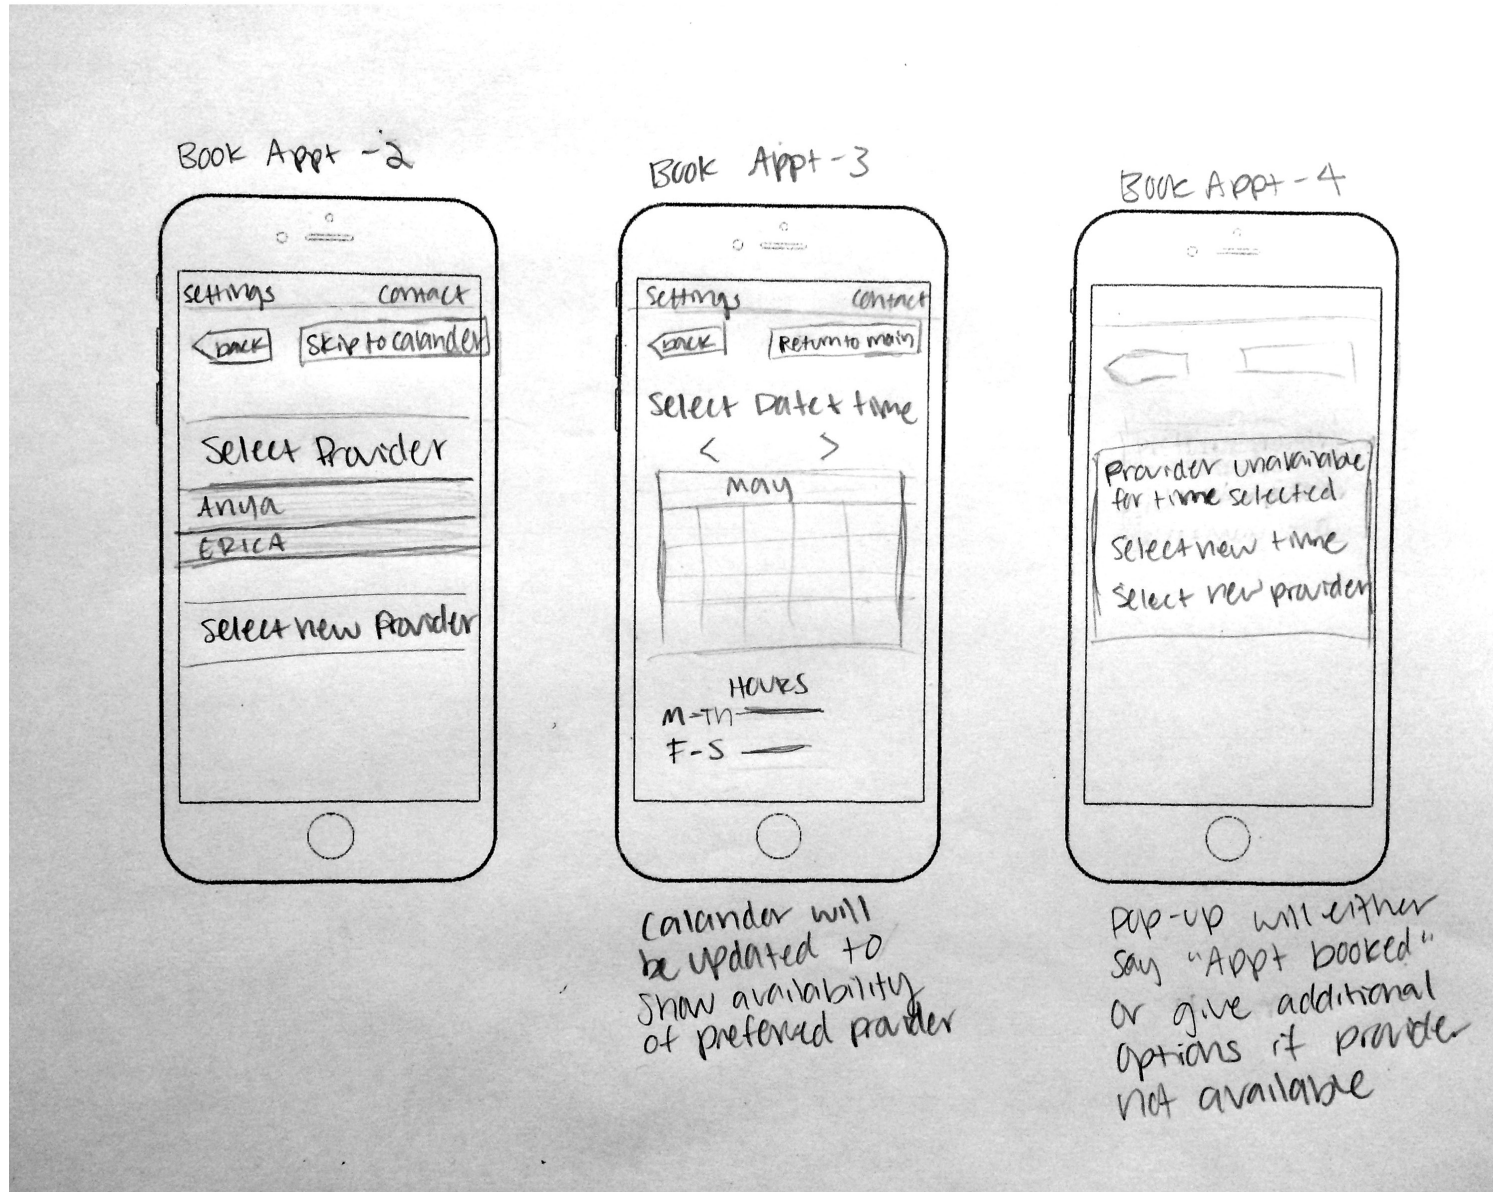 Book Appt - 2
Settings Contact
back Skip to calander
Select Provider
Anya
ERICA
Select new Provider
Book Appt - 3
Settings Contact
back Return to main
Select Date + time
< >
May
HOURS
M-Th
F-S
Calander will
be updated to
show availability
of preferred provider
Book Appt - 4
Provider unavailable
for time selected
Select new time
Select new provider
Pop-up will either
say "Appt booked"
or give additional
options if provider
not available